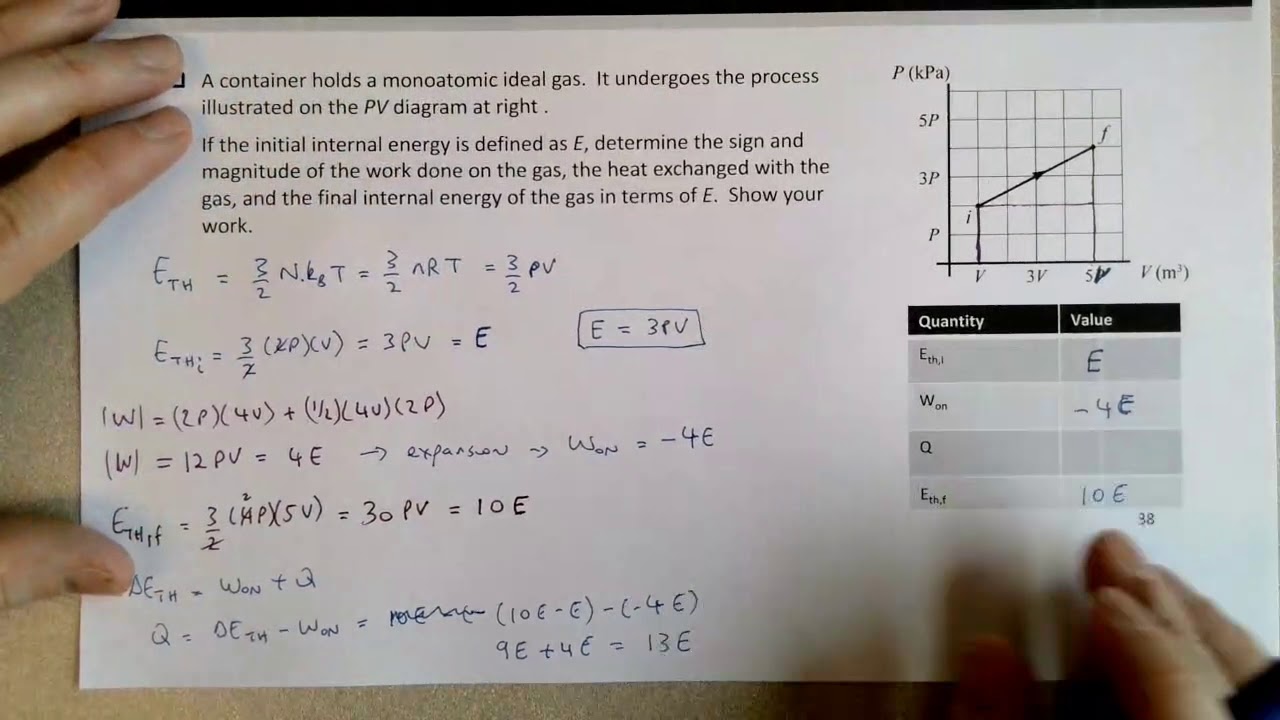 A container holds a monoatomic ideal gas. It undergoes the process
illustrated on the PV diagram at right .
If the initial internal energy is defined as E, determine the sign and
magnitude of the work done on the gas, the heat exchanged with the
gas, and the final internal energy of the gas in terms of E. Show your
work.
E_TH = 3/2 N k_B T = 3/2 nRT = 3/2 PV
E_THi = 3/2 (2P)(V) = 3PV = E
E = 3PV
|W| = (2P)(4V) + (1/2)(4V)(2P)
|W| = 12PV = 4E → expansion → W_ON = -4E
E_TH,f = 3/2 (4P)(5V) = 30PV = 10E
2
ΔE_TH = W_ON + Q
Q = ΔE_TH - W_ON = (10E - E) - (-4E)
9E + 4E = 13E
P (kPa)
5P
f
3P
i
P
V 3V 5V V (m³)
Quantity Value
E_th,i E
W_on -4E
Q
E_th,f 10E
38